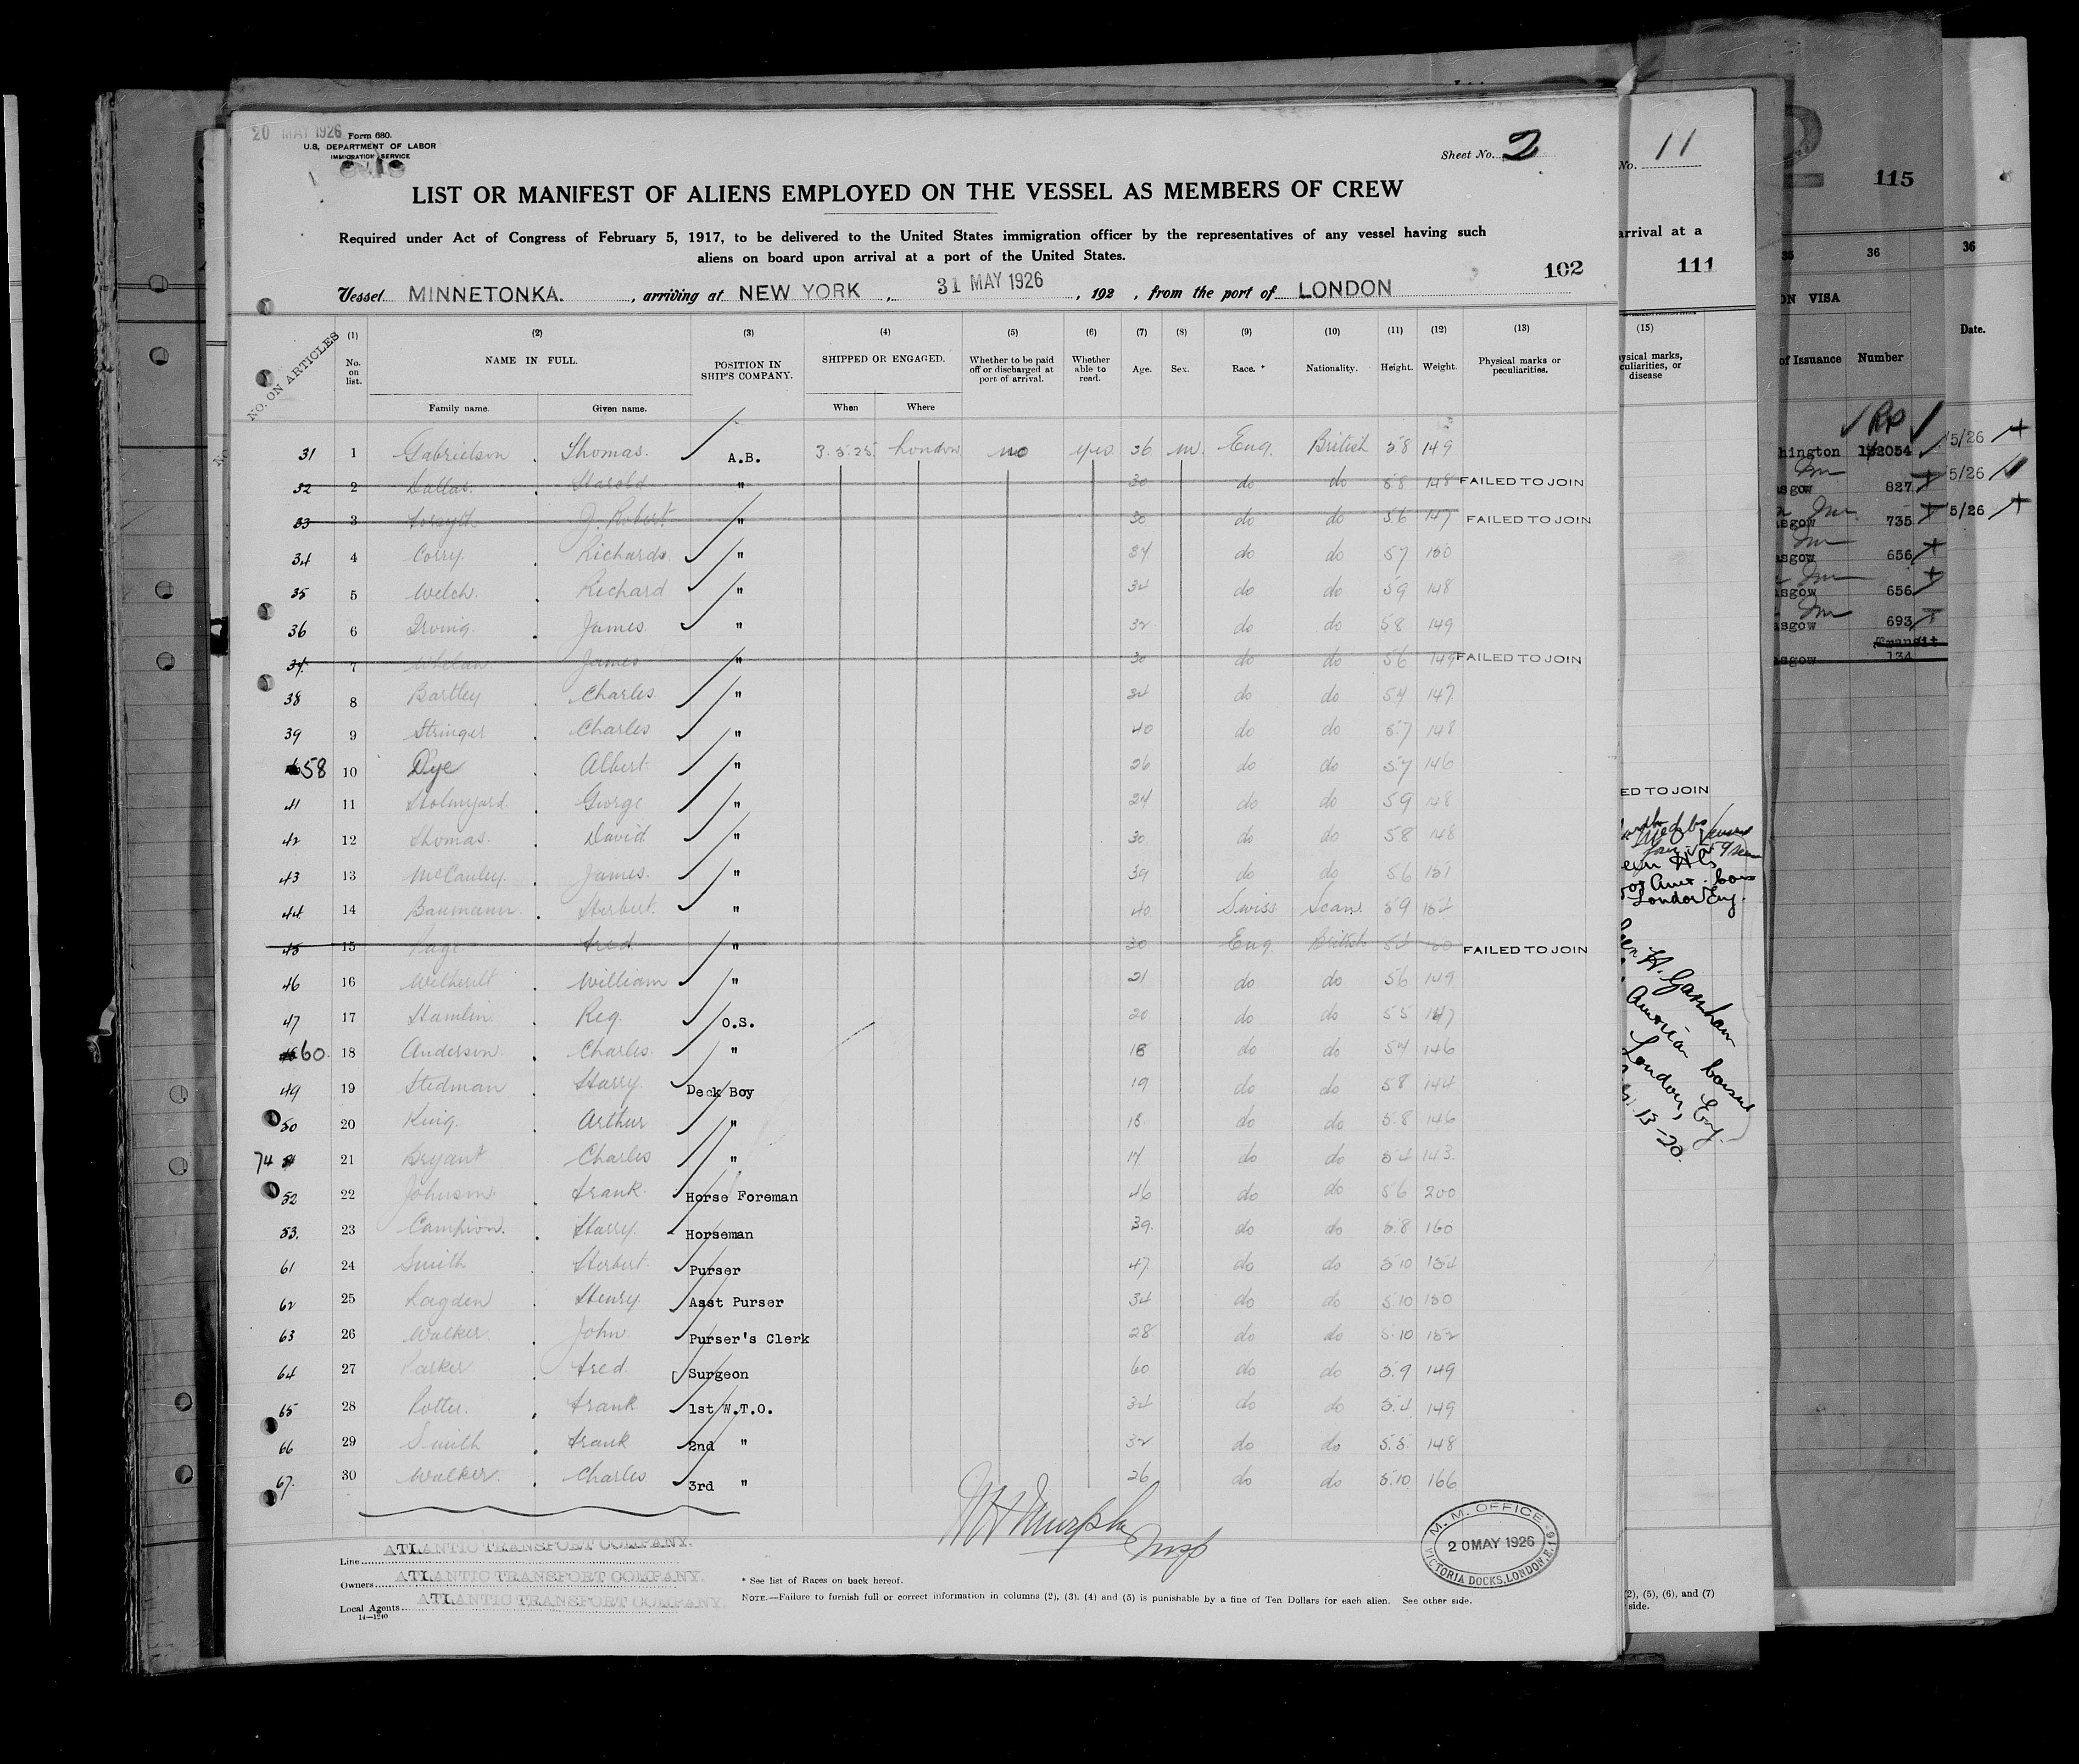 20 MAY 1926
Form 680.
U.S. DEPARTMENT OF LABOR
IMMIGRATION SERVICE
Sheet No. 2
LIST OR MANIFEST OF ALIENS EMPLOYED ON THE VESSEL AS MEMBERS OF CREW
Required under Act of Congress of February 5, 1917, to be delivered to the United States immigration officer by the representatives of any vessel having such
aliens on board upon arrival at a port of the United States.
102
Vessel MINNETONKA. , arriving at NEW YORK , 31 MAY 1926 , 192 , from the port of LONDON
NO. ON ARTICLES
(1) (2) (3) (4) (5) (6) (7) (8) (9) (10) (11) (12) (13)
No. on list. NAME IN FULL. POSITION IN SHIP'S COMPANY. SHIPPED OR ENGAGED. Whether to be paid off or discharged at port of arrival. Whether able to read. Age. Sex. Race. * Nationality. Height. Weight. Physical marks or peculiarities.
Family name. Given name. When Where
31 1 Gabrielson Thomas. A.B. 3.5.25 London no yes 36 m. Eng. British 58 149
32 2 Dallas. Harold " 30 do do 58 148 FAILED TO JOIN
33 3 Forsyth J. Robert " 30 do do 56 147 FAILED TO JOIN
34 4 Corry. Richards " 34 do do 57 150
35 5 Welch. Richard " 34 do do 59 148
36 6 Irving. James " 32 do do 58 149
37 7 Whelan James " 30 do do 56 149 FAILED TO JOIN
38 8 Bartley Charles " 24 do do 54 147
39 9 Stringer Charles " 40 do do 5.7 148
58 10 Dye Albert " 26 do do 57 146
41 11 George " 24 do do 59 148
42 12 Thomas. David " 30 do do 58 148
43 13 McCauley. James. " 39 do do 56 151
44 14 Baumann. Herbert. " 40 Swiss Scan. 59 154
45 15 Page Fred. " 30 Eng British FAILED TO JOIN
46 16 Wetherilt William " 21 do do 56 149
47 17 Hamlin Reg. O.S. 20 do do 55 147
60. 18 Anderson. Charles. " 18 do do 54 146
49 19 Stedman Harry. Deck Boy 19 do do 58 144
50 20 King. Arthur " 18 do do 5.8 146
74 21 Bryant Charles " 17 do do 54 143
52 22 Johnson Frank Horse Foreman 46 do do 56 200
53. 23 Campion. Harry. Horseman 39. do do 5.8 160
61 24 Smith Herbert. Purser 47 do do 5.10 154
62 25 Lagden Henry. Asst Purser 34 do do 5.10 150
63 26 Walker. John Purser's Clerk 28. do do 5.10 152
64 27 Parker Fred Surgeon 60 do do 5.9 149
65 28 Potter. Frank 1st W.T.O. 34 do do 5.4 149
66 29 Smith Frank 2nd " 32 do do 5.5. 148
67. 30 Walker. Charles 3rd " 26 do do 5.10 166
Murphy Insp
Line ATLANTIC TRANSPORT COMPANY.
Owners ATLANTIC TRANSPORT COMPANY.
Local Agents ATLANTIC TRANSPORT COMPANY.
14—1240
* See list of Races on back hereof.
NOTE.—Failure to furnish full or correct information in columns (2), (3), (4) and (5) is punishable by a fine of Ten Dollars for each alien. See other side.
M. M. OFFICE
20 MAY 1926
VICTORIA DOCKS, LONDON, E.16
No. 11
arrival at a
111
(15)
ysical marks,
culiarities, or
disease
ED TO JOIN
London Eng.
H. Garnham
American
London, Eng.
13-20.
(2), (5), (6), and (7)
side.
2
115
35 36
ON VISA
of Issuance Number
hington 132054
sgow 827
sgow 735
sgow 656
sgow 656
sgow 693
Transit
sgow 134
36
Date.
5/26
5/26
5/26